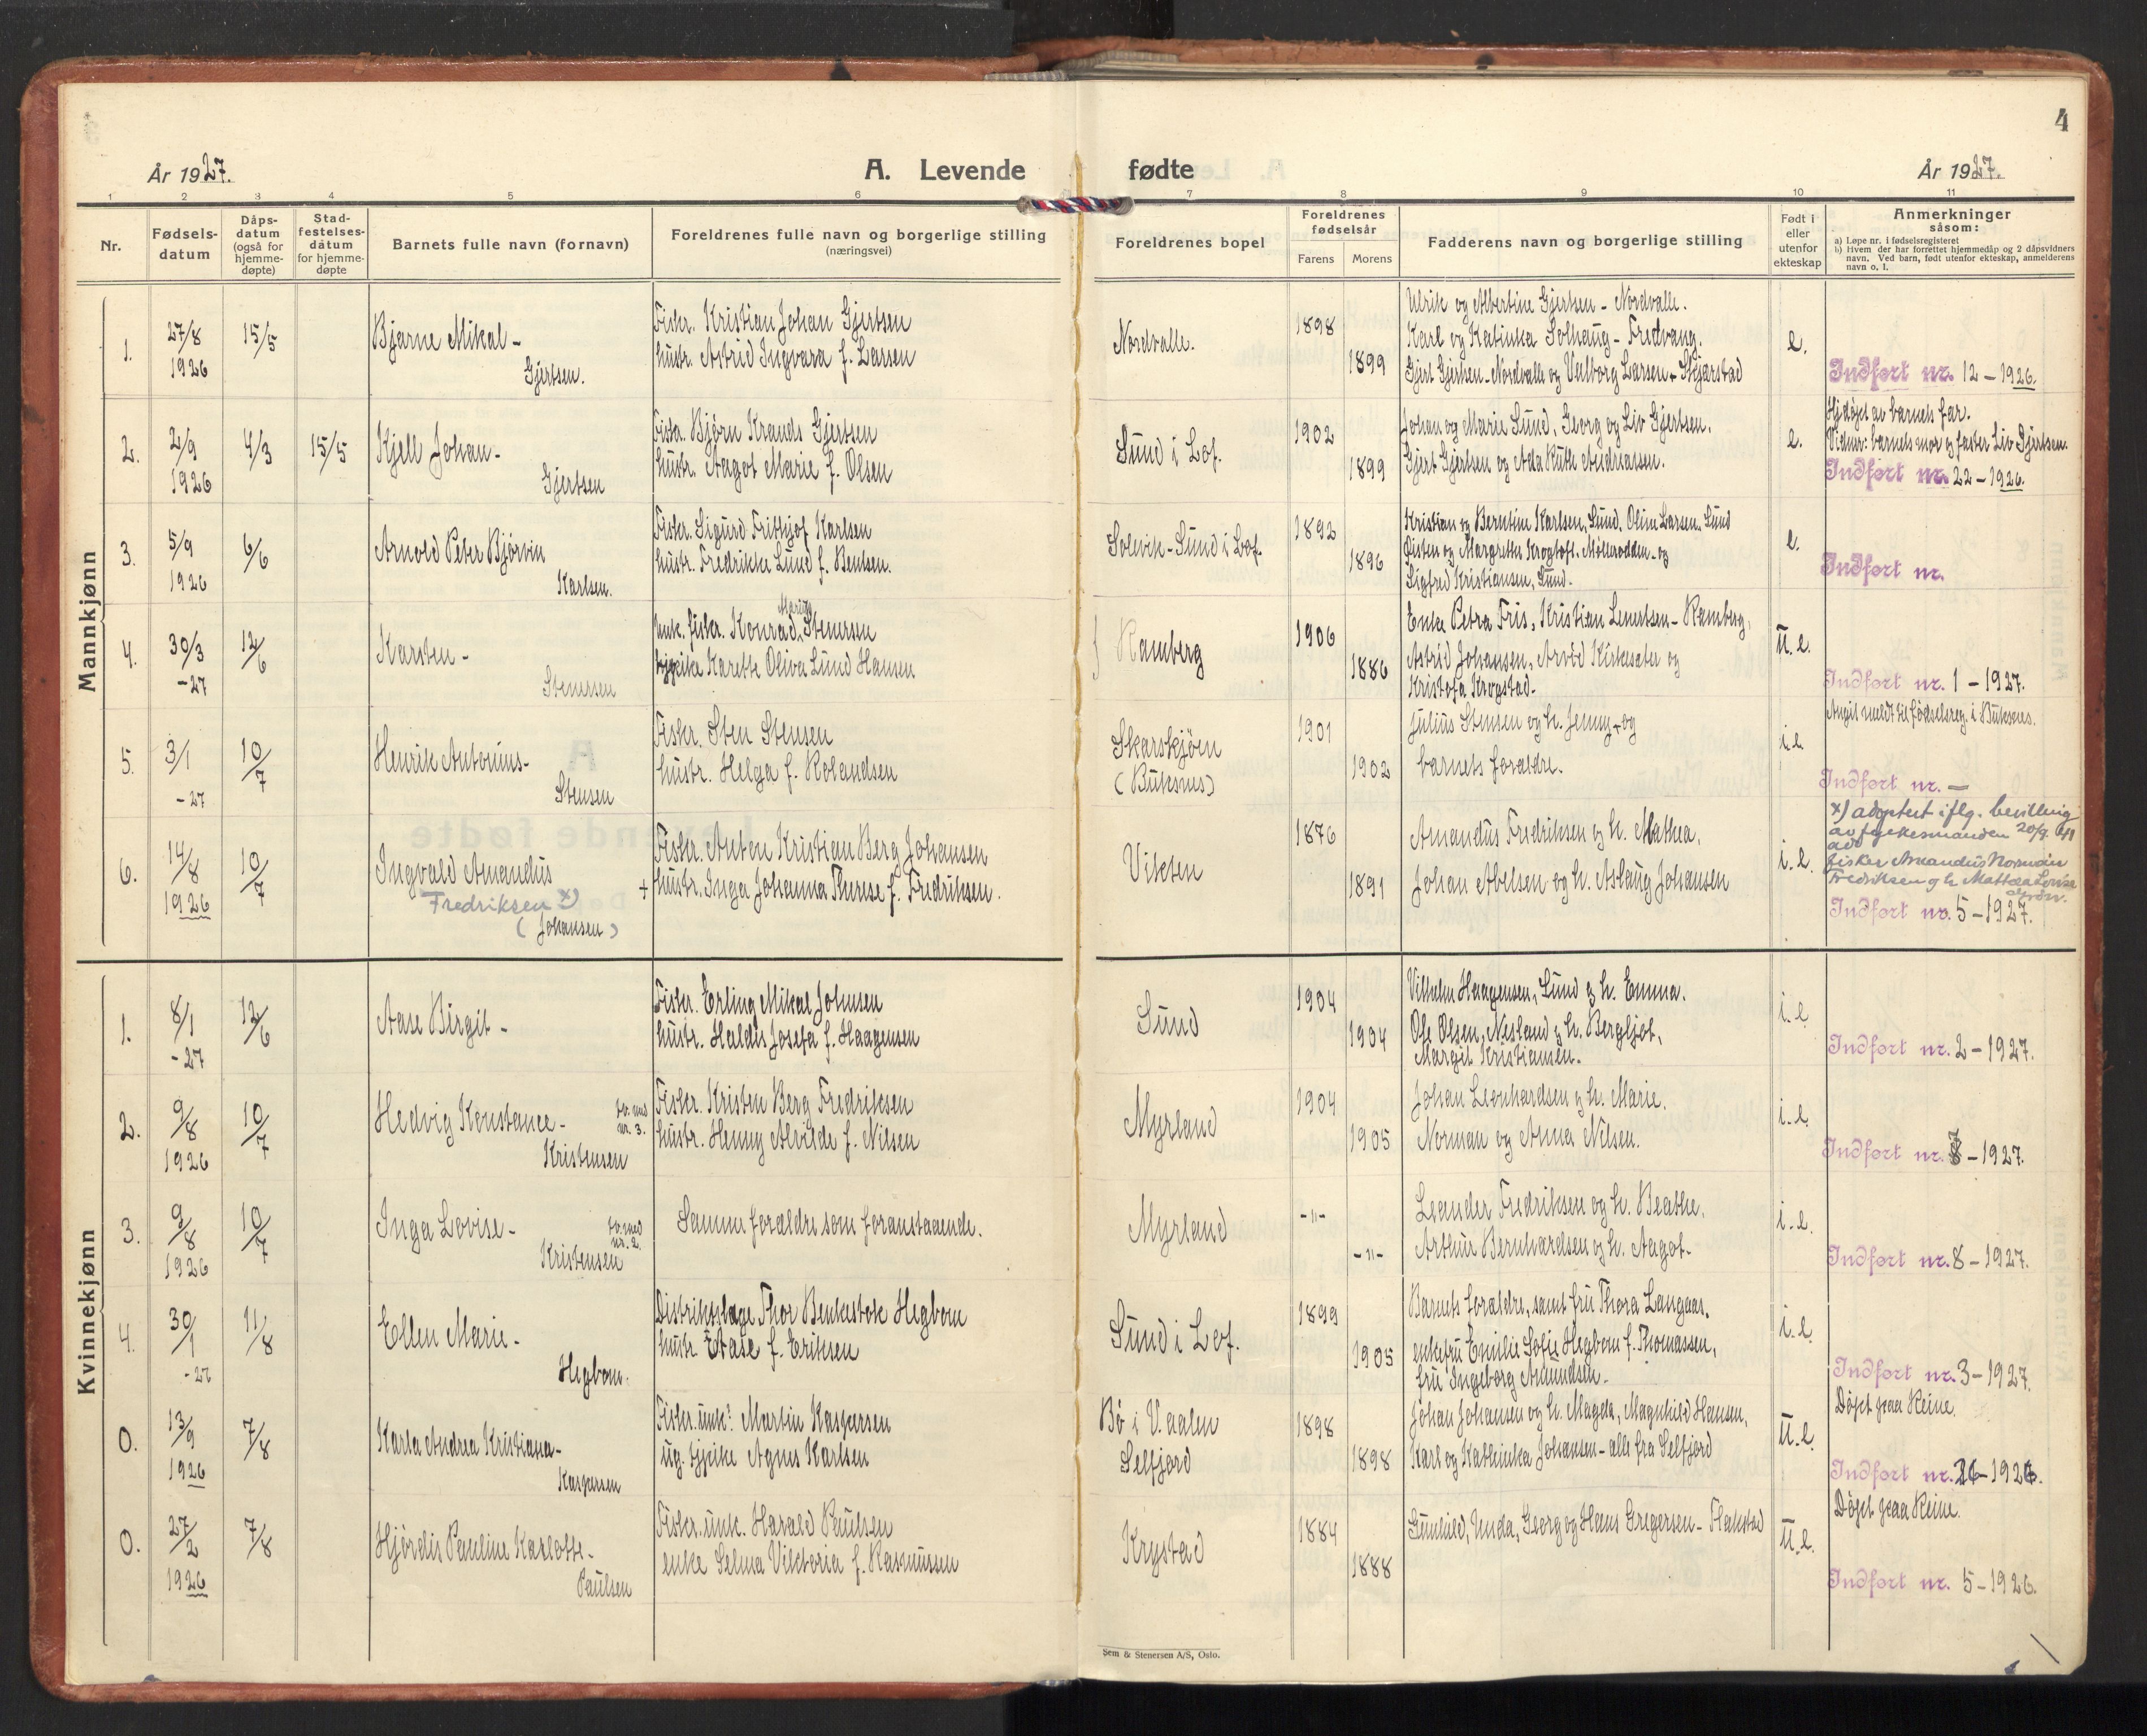 4
År 1927.
A. Levende
fødte
År 1927.
1 2 3 4 5 6 7 8 9 10 11
Nr.
Fødsels-
datum
Dåps-
datum
(også for
hjemme-
døpte)
Stad-
festelses-
dåtum
for hjemme-
døpte
Barnets fulle navn (fornavn)
Foreldrenes fulle navn og borgerlige stilling
(næringsvei)
Foreldrenes bopel
Foreldrenes
fødselsår
Farens Morens
Fadderens navn og borgerlige stilling
Født i
eller
utenfor
ekteskap
Anmerkninger
såsom:
a) Løpe nr. i fødselsregisteret
b) Hvem der har forrettet hjemmedåp og 2 dåpsvidners
navn. Ved barn, født utenfor ekteskap, anmelderens
navn o. l.
Mannkjønn
1.
27/8
1926
15/5
Bjarne Mikal -
Gjertsen.
Fisker. Kristian Johan Gjertsen
hustr. Astrid Ingvara f. Larsen
Nordvalle.
1898
1899
Ulrik og Albertine Gjertsen - Nordvalle.
Karl og Katinka Solhaug - Fredvang.
Gjert Gjertsen - Nordvalle og Valborg Larsen - Skjærstad
e.
Indført nr. 12 - 1926.
2.
2/9
1926
4/3
15/5
Kjell Johan -
Gjertsen
Fiskr. Bjørn Krands Gjertsen
hustr. Aagot Marie f. Olsen
Sund i Lof.
1902
1899
Johan og Marie Sund, Georg og Liv Gjertsen.
Gjert Gjertsen og Ada Ruth Andreassen.
e.
Hjdøpt av barnets far.
Vidner: barnets mor og faster Liv Gjertsen.
Indført nr. 22 - 1926.
3.
5/9
1926
6/6
Arnold Peter Bjørvin
Karlsen.
Fiskr. Sigurd Frithjof Karlsen
hustr. Fredrikke Lund f. Bentsen.
Solvik - Sund i Lof.
1892
1896
Kristian og Berntine Karlsen, Sund, Oline Larsen, Sund
Øisten og Margrethe Krogtoft - Møllerodden - og
Sigfred Kristiansen, Sund.
e.
Indført nr.
4.
30/3
-27
12/6
Karsten -
Stenersen
Marius
unk. fiskr. Konrad Stenersen
og pike Karette Oliva Lund Hansen
Ramberg
1906
1886
Enke Petra Fris, Kristian Lenertsen - Ramberg,
Astrid Johansen, Arvid Kirkesæter og
Kristofa Krogstad.
u. e.
Indført nr. 1 - 1927.
5.
3/1
-27
10/7
Henrik Antonius -
Stensen
Fiskr. Sten Stensen
hustr. Helga f. Rolandsen
Skarskjøen
(Buksnes)
1901
1902
Julius Stensen og h. Jenny - og
barnets forældre.
i. e.
Angit meldt til fødselsreg. i Buksnes.
Indført nr. —
6.
14/8
1926
10/7
Ingvald Amandus
Fredriksen x)
(Johansen)
Fiskr. Anton Kristian Berg Johansen
+ hustr. Inga Johanna Therese f. Fredriksen.
Vikten
1876
1891
Amandus Fredriksen og h. Mathea,
Johan Abelsen og h. Aslaug Johansen
i. e.
x) adoptert iflg. bevilling
av fylkesmanden 20/9
av
fisker Amandus Norman
Fredriksen og h. Mathea Lovise
Indført nr. 5 - 1927.
Kvinnekjønn
1.
8/1
-27
12/6
Aase Birgit -
Fiskr. Erling Mikal Johnsen
hustr. Haldis Josefa f. Haagensen
Sund
1904
1904
Vilhelm Haagensen, Sund og h. Emma.
Ole Olsen, Nesland og h. Bergljot,
Margit Kristiansen.
i. e.
Indført nr. 2 - 1927.
2.
9/8
1926
10/7
Hedvig Konstance -
tv. med
nr. 3.
Kristensen
Fiskr. Kristen Berg Fredriksen
hustr. Henny Alvilde f. Nilsen
Myrland
1904
1905
Johan Leonhardsen og h. Marie.
Norman og Anna Nilsen.
i. e.
Indført nr. 7 - 1927.
3.
9/8
1926
10/7
Inga Lovise -
tv. med
nr. 2.
Kristensen
Samme forældre som foranstaaende.
Myrland
- " -
- " -
Leander Fredriksen og h. Beathe.
Arthur Bernhardsen og h. Aagot.
i. e.
Indført nr. 8 - 1927.
4.
30/1
-27
11/8
Ellen Marie -
Hegbom.
Distriktslæge Thor Benkestok Hegbom
hustr. Aase f. Eriksen
Sund i Lof.
1899
1905
Barnets forældre, samt fru Thora Langaas.
enkefru Emilie Sofie Hegbom f. Thomassen,
fru Ingeborg Amundsen.
i. e.
Indført nr. 3 - 1927.
0.
13/9
1926
7/8
Karla Andrea Kristiana -
Kaspersen
Fiskr. unk. Martin Kaspersen
ug. pike Agnes Karlsen
Bø i V.aalen
Selfjord
1898
1898
Johan Johansen og h. Magda, Magnhild Hansen,
Karl og Kathinka Johansen - alle fra Selfjord
u. e.
Døpt paa Reine.
Indført nr. 21 - 1926.
0.
27/2
1926
7/8
Hjørdis Pauline Karlotte -
Paulsen
Fiskr. unk. Harald Paulsen
enke Selma Viktoria f. Rasmussen
Krystad
1884
1888
Gunhild, Unda, Georg og Hans Gregersen - Flakstad
u. e.
Døpt paa Reine.
Indført nr. 5 - 1926.
Sem & Stenersen A/S, Oslo.